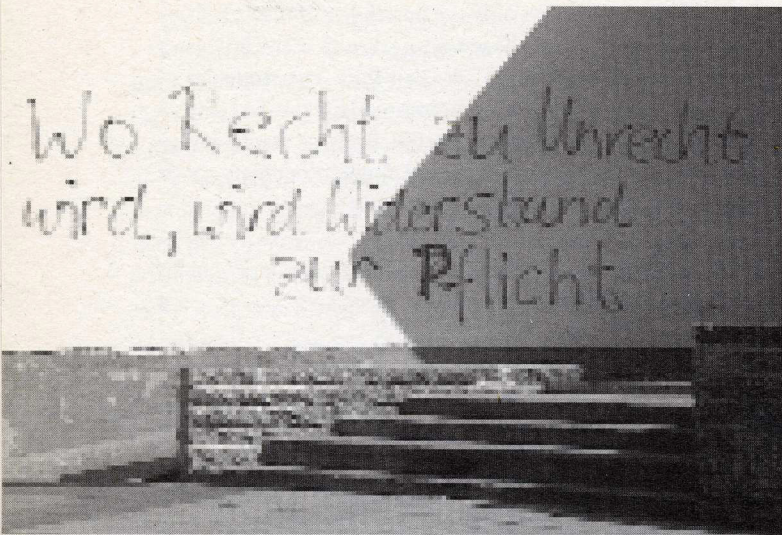 Wo Recht zu Unrecht
wird, wird Widerstand
zur Pflicht.